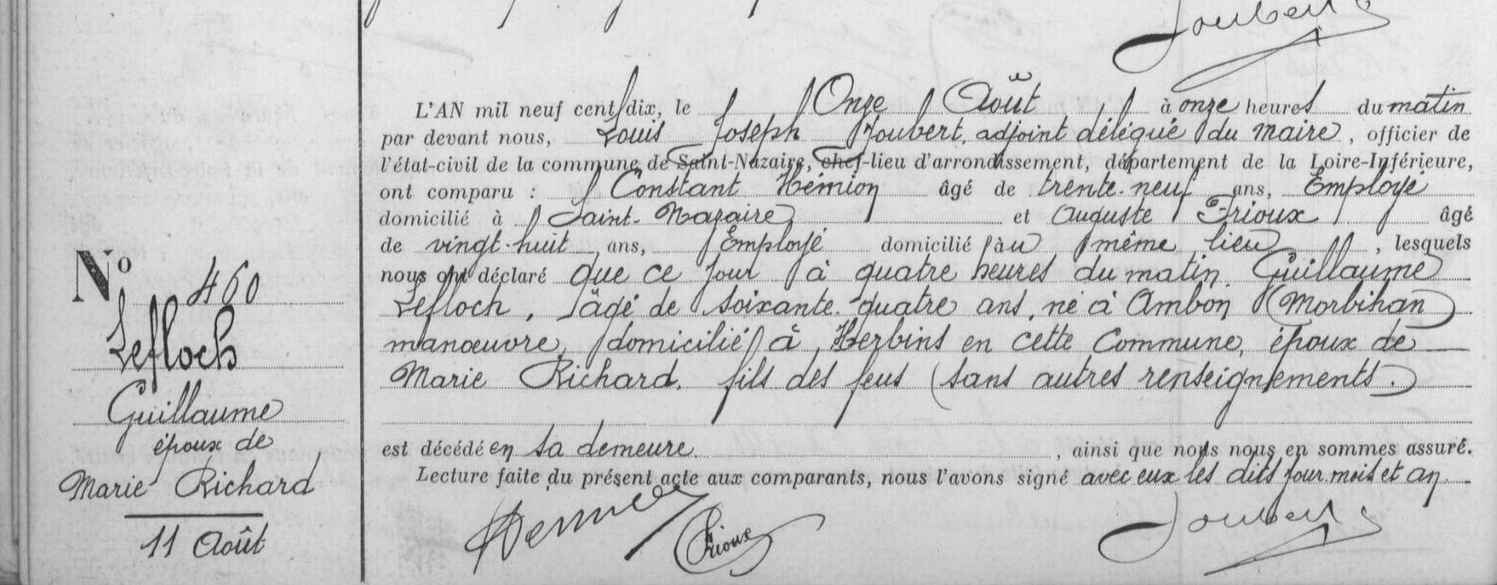 Joubert
L'AN mil neuf cent dix, le Onze Août à onze heures du matin
par devant nous, Louis Joseph Joubert, adjoint délégué du Maire, officier de
l'état-civil de la commune de Saint-Nazaire, chef-lieu d'arrondissement, département de la Loire-Inférieure,
ont comparu : Constant Hémion âgé de trente-neuf ans, Employé
domicilié à Saint-Nazaire et Auguste Frioux âgé
de vingt-huit ans, Employé domicilié au même lieu, lesquels
nous ont déclaré que ce jour à quatre heures du matin, Guillaume
Lefloch, âgé de soixante-quatre ans, né à Ambon (Morbihan)
manœuvre, domicilié à Herbins en cette Commune, époux de
Marie Richard, fils des feus (sans autres renseignements.)
est décédé en sa demeure. , ainsi que nous nous en sommes assuré.
Lecture faite du présent acte aux comparants, nous l'avons signé avec eux les dits jour, mois et an.
Frioux Joubert
No 460
Lefloch
Guillaume
époux de
Marie Richard
11 Août